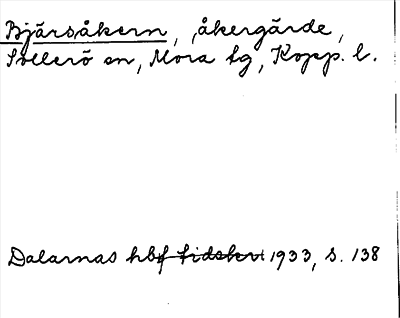 Bjärsåkern, åkergärde,
Sollerö sn, Mora tg, Kopp. l.
Dalarnas hbf tidskr 1933, s. 138